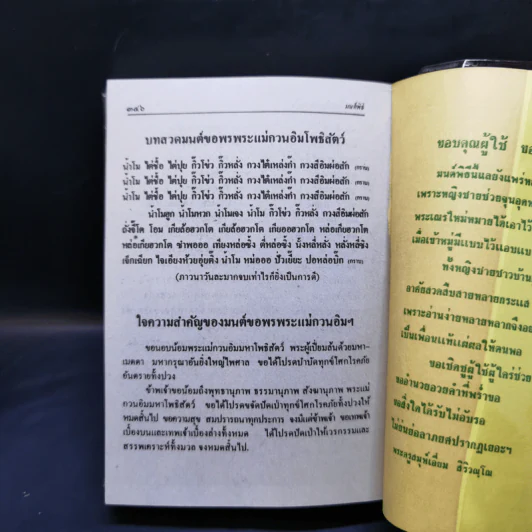 ๓๔๖
มนต์พิธี
บทสวดมนต์ขอพรพระแม่กวนอิมโพธิสัตว์
น้ำโม ไต๋ชื้อ ไต่ปุย กิ้วโข่ว กิ้วหลั่ง กวงไต๋เหล่งก้ำ กวงสี่อิมผ่อสัก (กราบ)
น้ำโม ไต๋ชื้อ ไต่ปุย กิ้วโข่ว กิ้วหลั่ง กวงไต๋เหล่งก้ำ กวงสี่อิมผ่อสัก (กราบ)
น้ำโม ไต๋ชื้อ ไต่ปุย กิ้วโข่ว กิ้วหลั่ง กวงไต๋เหล่งก้ำ กวงสี่อิมผ่อสัก (กราบ)
น้ำโมฮูก น้ำโมหวก น้ำโมเจง น้ำโม กิ้วโข่ว กิ้วหลั่ง กวงสี่อิมผ่อสัก
ตั่งจี้โต โอม เกียล้อฮวกโต เกียล้อฮวกโต เกียออฮวกโต หล่อเกียฮวกโต
หล่อเกียฮวกโต ซำพอออ เทียงหล่อซิ้ง ตี่หล่อซิ้ง นั้งหลี่หลั่ง หลั่งหลี่ซิ้ง
เจ็กเฉียก ใจเอียงห้วยอุ่ยติ๊ง น้ำโม หม่อออ ปัวเยี๊ยะ ปอหล่อบิ๊ก (กราบ)
(ภาวนาวันละมากจบเท่าไรก็ยิ่งเป็นการดี)
ใจความสำคัญของมนต์ขอพรพระแม่กวนอิมฯ
ขอนอบน้อมพระแม่กวนอิมมหาโพธิสัตว์ พระผู้เปี่ยมล้นด้วยมหา-
เมตตา มหากรุณาอันยิ่งใหญ่ไพศาล ขอได้โปรดบำบัดทุกข์โศกโรคภัย
อันตรายทั้งปวง
ข้าพเจ้าขอน้อมถึงพุทธานุภาพ ธรรมานุภาพ สังฆานุภาพ พระแม่
กวนอิมมหาโพธิสัตว์ ขอได้โปรดขจัดปัดเป่าทุกข์โศกโรคภัยทั้งปวงให้
หมดสิ้นไป ขอความสุข สมปรารถนาทุกประการ จงมีแด่ข้าพเจ้า ขอเทพเจ้า
เบื้องบนและเทพเจ้าเบื้องล่างทั้งหมด ได้โปรดปัดเป่าให้เวรกรรมและ
ธรพเคราะห์ทั้งมวล จงหมดสิ้นไป.
ขอบคุณผู้ใช้
มนต์พิธีนี้แลยังแพร่ห
เพราะหญิงชายช่วยจูนอุด
พระเณรใหม่หมายได้เอาไว้
เมื่อเข้าหมู่มีแบบไว้แอบแน
ทั้งหญิงชายชาวบ้าน
อาศัยสวดสืบสายหลายกระแส
เพราะอ่านง่ายหลายหลากจึง
เป็นเพื่อนแท้แผ่ผลให้ตนพอ
ขอเชิญผู้ใช้ผู้ใคร่ช่วย
ขออำนวยอวยคำที่พร่ำขอ
ขอสิ่งใดได้รับไม่อับรอ
ไม่ย่นย่อลาภยศปรากฏเยอะฯ
พระครูสมุห์เอี่ยม สิริวณฺโณ